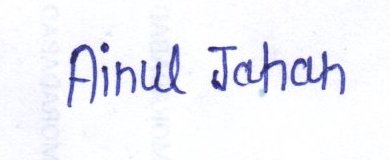 Ainul Jahan